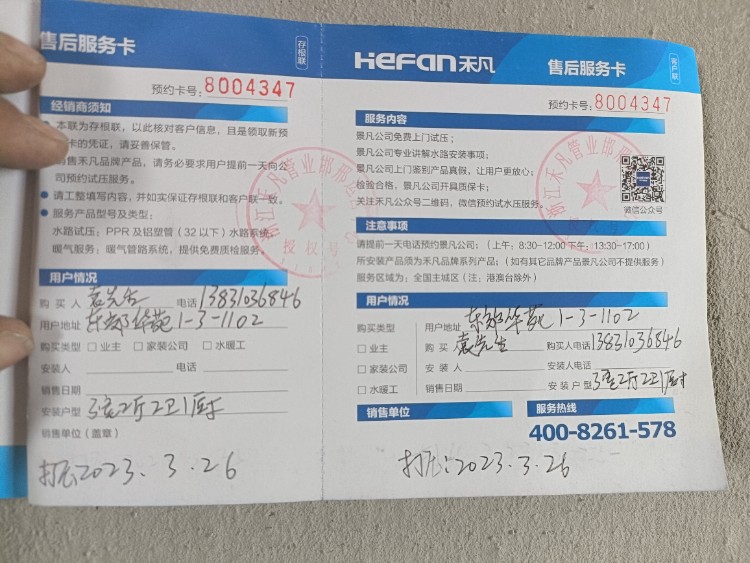 售后服务卡
存根联
预约卡号: 8004347
经销商须知
本联为存根联，以此核对客户信息，且是领取新预
卡的凭证，请妥善保管。
售禾凡品牌产品，请务必要求用户提前一天向公
司预约试压服务。
请工整填写内容，并如实保证存根联和客户联一致。
服务产品型号及类型:
水路试压: PPR 及铝塑管（32 以下）水路系统。
暖气服务: 暖气管路系统，提供免费质检服务。
授权号
用户情况
购买人 袁先生 电话 13831036846
用户地址 东郡华苑1-3-1102
购买类型 □ 业主 □ 家装公司 □ 水暖工
安装人 电话
销售日期
安装户型 3室2厅2卫1厨
销售单位（盖章）
打压2023.3.26
HEFAN禾凡
售后服务卡
客户联
预约卡号: 8004347
服务内容
景凡公司免费上门试压;
景凡公司专业讲解水路安装事项;
景凡公司上门鉴别产品真假，让用户更放心;
检验合格，景凡公司开具质保卡;
关注禾凡公众号二维码，微信预约试水压服务。
微信公众号
浙江禾凡管业邯郸
注意事项
请提前一天电话预约景凡公司:（上午: 8:30-12:00 下午: 13:30-17:00）
所安装产品须为禾凡品牌系列产品;（如有其它品牌产品景凡公司不提供服务）
服务区域为: 全国主城区（注: 港澳台除外）
用户情况
购买类型 用户地址 东郡华苑1-3-1102
□ 业主 购买 袁先生 购买人电话 13831036846
□ 家装公司 安装人 安装人电话
□ 水暖工 销售日期 安装户型 3室2厅2卫1厨
销售单位
服务热线
400-8261-578
打压:2023.3.26